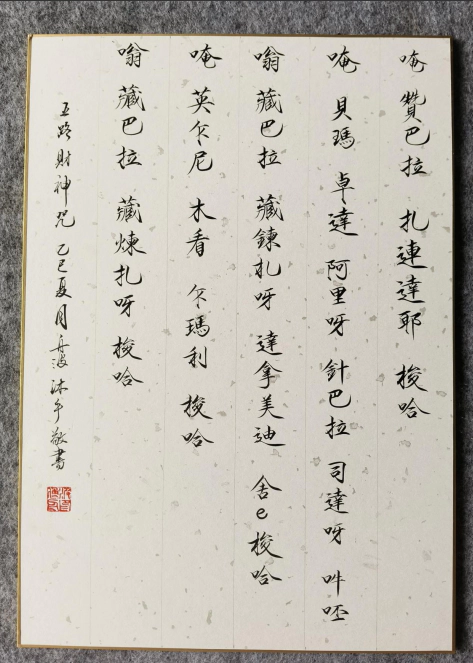 唵 贊巴拉 扎連達耶 梭哈
唵 貝瑪 卓達 阿里呀 針巴拉 司達呀 吽呸
嗡 藏巴拉 藏鍊扎呀 達拿美迪 舍e梭哈
唵 英尔尼 木看 尔瑪利 梭哈
嗡 藏巴拉 藏煉扎呀 梭哈
五路財神咒 乙巳夏月 沐手敬書